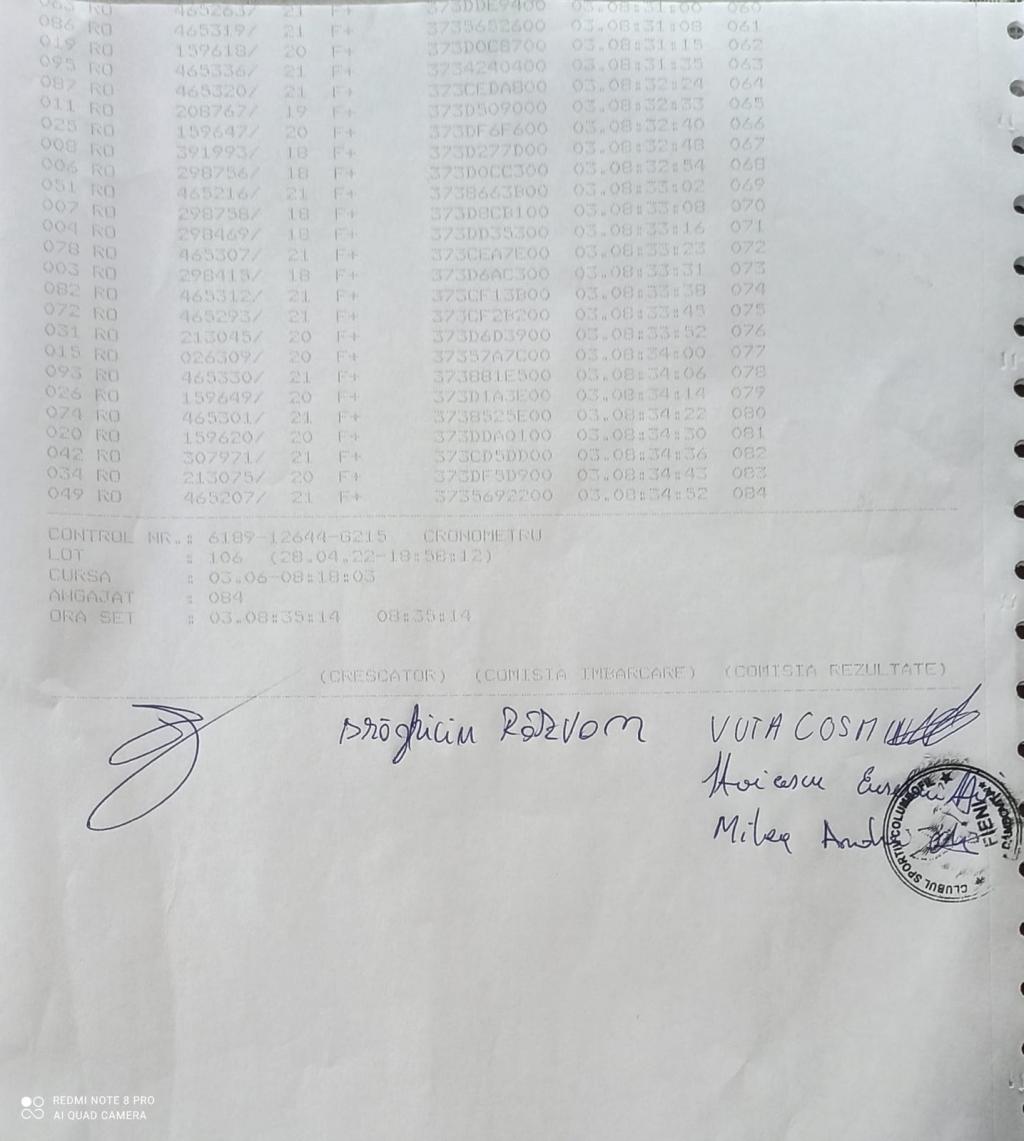 063 RO 465263/ 21 F+ 373DDE9400 03.08:31:00 060
086 RO 465319/ 21 F+ 3735652600 03.08:31:08 061
019 RO 159618/ 20 F+ 373D0C8700 03.08:31:15 062
095 RO 465336/ 21 F+ 3734240400 03.08:31:35 063
087 RO 465320/ 21 F+ 373CEDA800 03.08:32:24 064
011 RO 208767/ 19 F+ 373D509000 03.08:32:33 065
025 RO 159647/ 20 F+ 373DF6F600 03.08:32:40 066
008 RO 391993/ 18 F+ 373D277D00 03.08:32:48 067
006 RO 298756/ 18 F+ 373D0CC300 03.08:32:54 068
051 RO 465216/ 21 F+ 3738663B00 03.08:33:02 069
007 RO 298758/ 18 F+ 373D8CB100 03.08:33:08 070
004 RO 298469/ 18 F+ 373DD35300 03.08:33:16 071
078 RO 465307/ 21 F+ 373CEA7E00 03.08:33:23 072
003 RO 298415/ 18 F+ 373D6AC300 03.08:33:31 073
082 RO 465312/ 21 F+ 373CF13B00 03.08:33:38 074
072 RO 465293/ 21 F+ 373CF2B200 03.08:33:45 075
031 RO 213045/ 20 F+ 373D6D3900 03.08:33:52 076
015 RO 026309/ 20 F+ 37357A7C00 03.08:34:00 077
093 RO 465330/ 21 F+ 373881E500 03.08:34:06 078
026 RO 159649/ 20 F+ 373D1A3E00 03.08:34:14 079
074 RO 465301/ 21 F+ 3738525E00 03.08:34:22 080
020 RO 159620/ 20 F+ 373DDA0100 03.08:34:30 081
042 RO 307971/ 21 F+ 373CD5DD00 03.08:34:36 082
034 RO 213075/ 20 F+ 373DF5D900 03.08:34:43 083
049 RO 465207/ 21 F+ 3735692200 03.08:34:52 084
CONTROL NR.: 6189-12644-6215 CRONOMETRU
LOT : 106 (28.04.22-18:58:12)
CURSA : 03.06-08:18:03
ANGAJAT : 084
ORA SET : 03.08:35:14 08:35:14
(CRESCATOR) (COMISIA IMBARCARE) (COMISIA REZULTATE)
Drăghiciu RĂZVAN VUTA COSMIN
Stoicescu
Milea
CLUBUL SPORTIV COLUMBOFIL
FIENI
REDMI NOTE 8 PRO
AI QUAD CAMERA